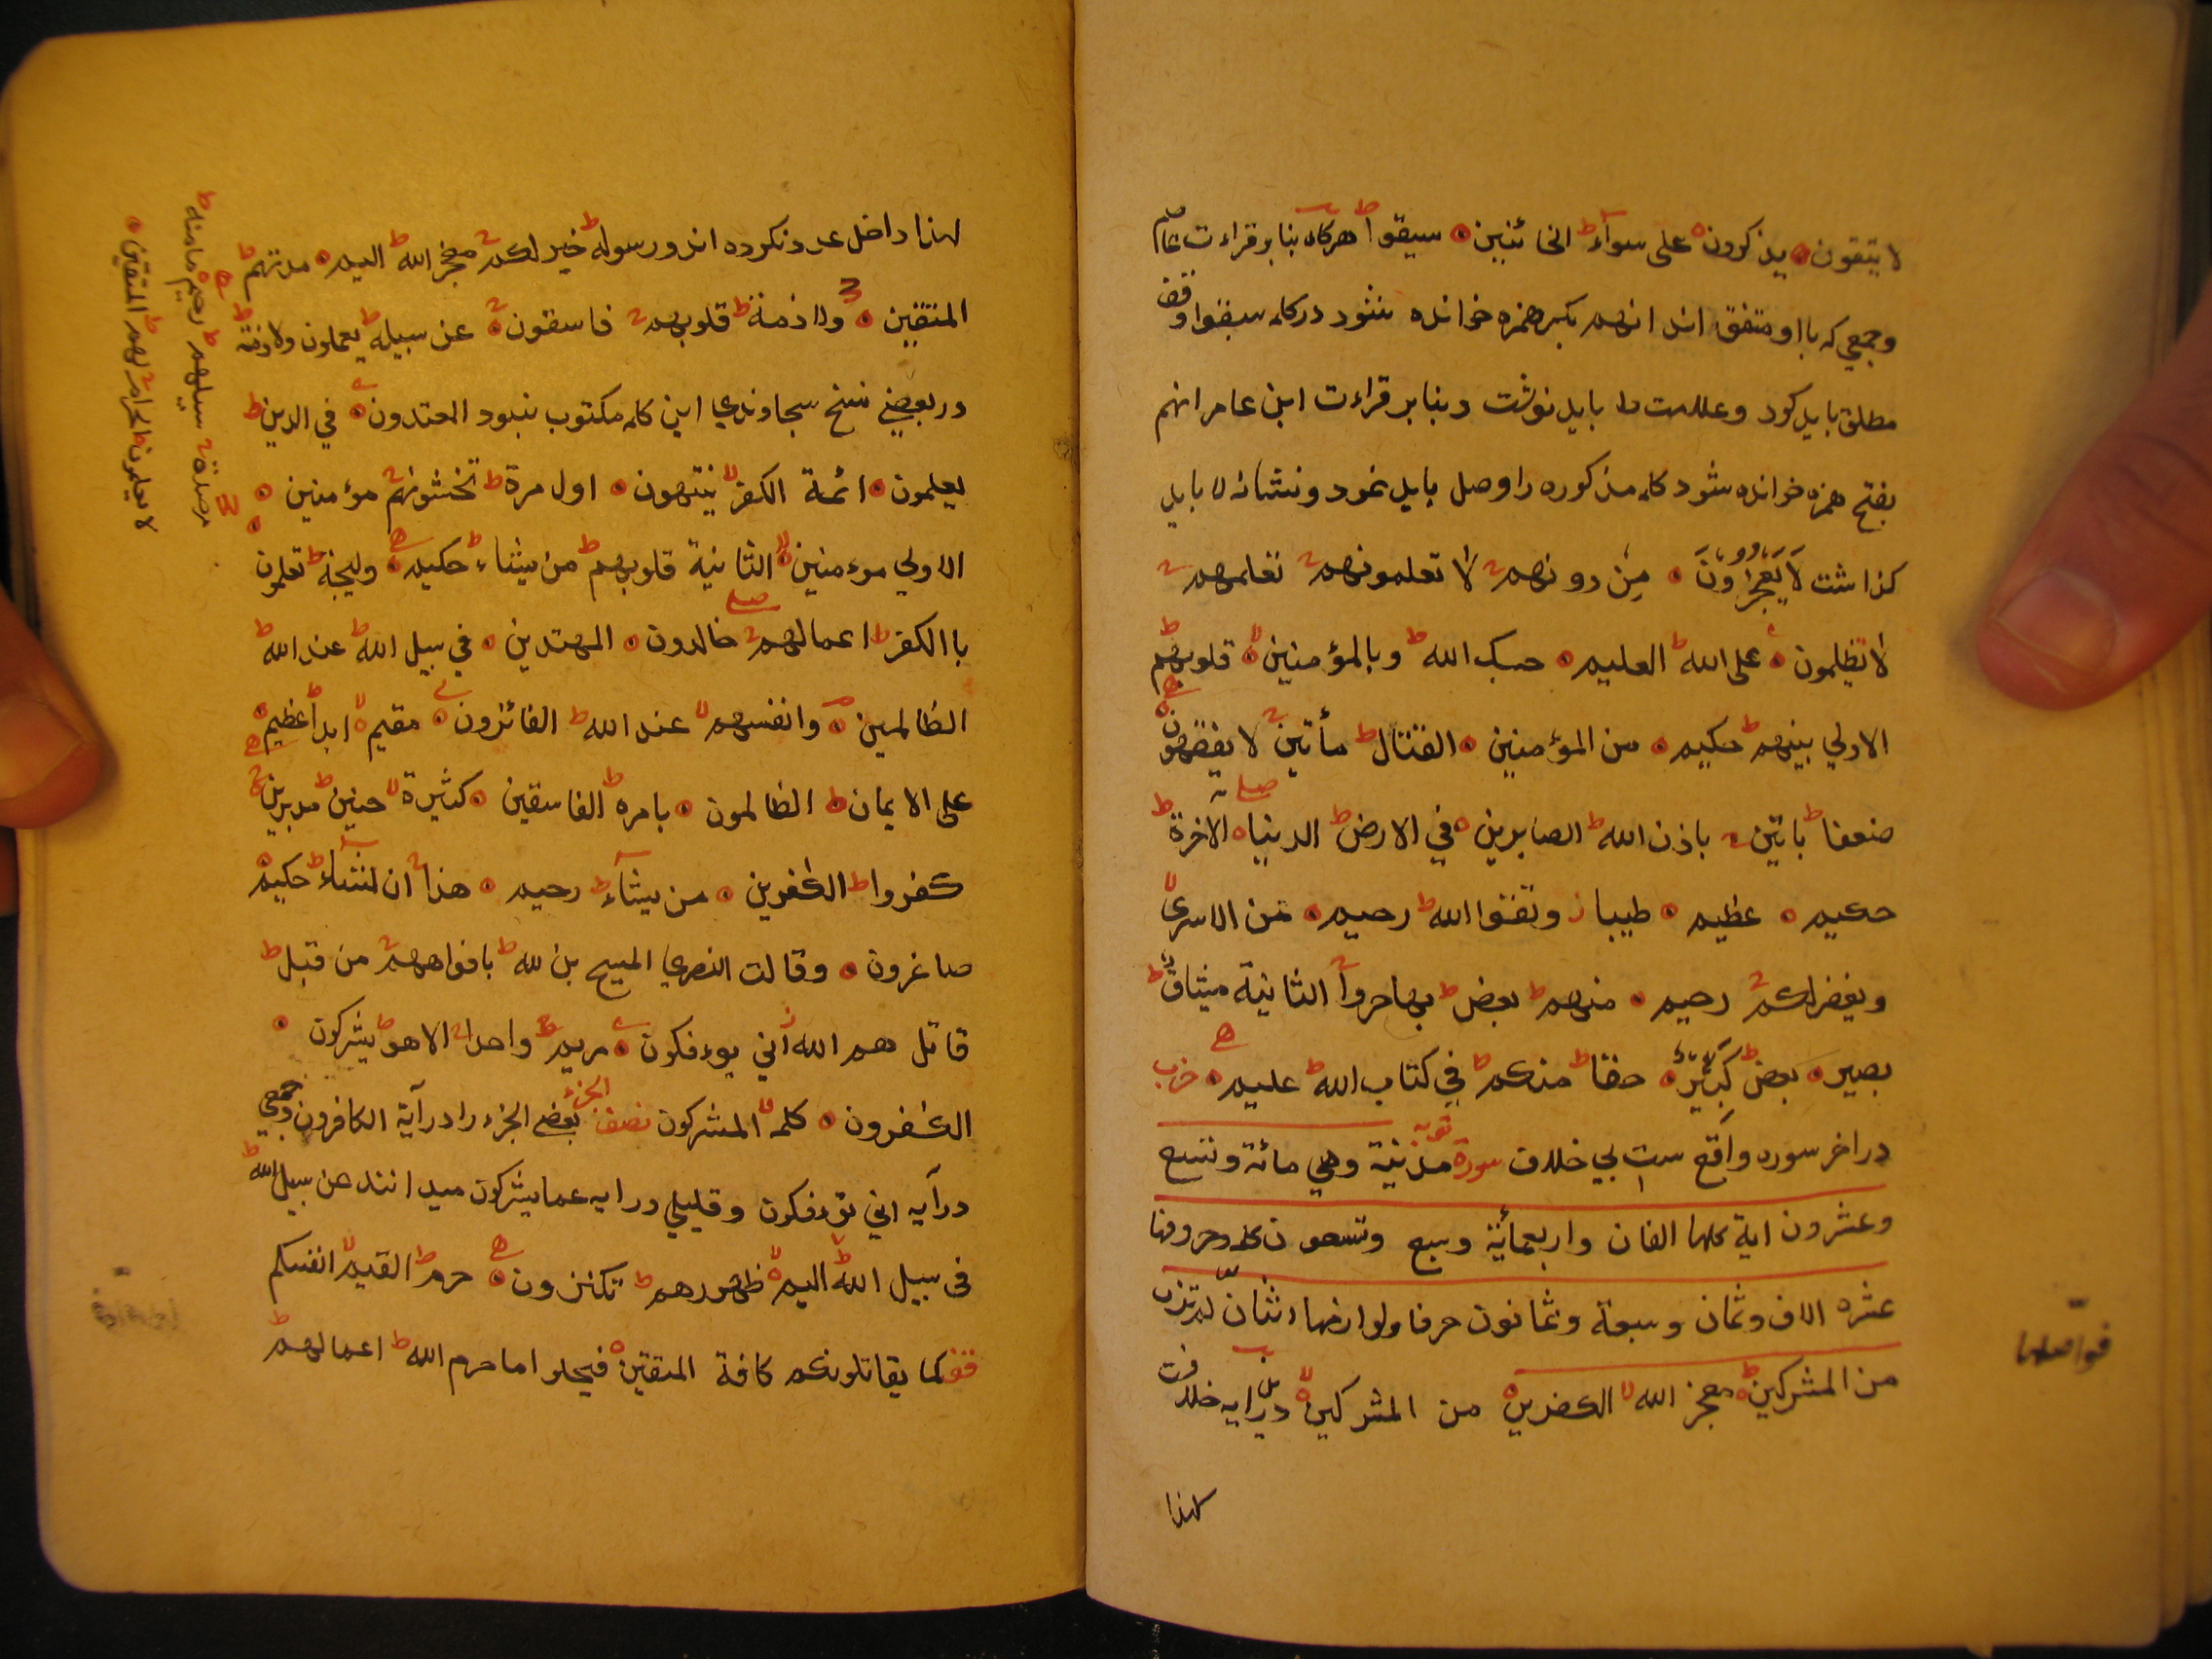 لا يتقون يذكرون على سوآء ط الخائنين سبقوا ط هركاه بنا بر قراءت عاصم
وجمعي كه با او متفق اند انهم بكسر همزه خوانده شود در كلمه سبقوا وقف
مطلق بايد كرد وعلامت ط بايد نوشت وبنا بر قراءت ابن عامر انهم
بفتح همزه خوانده شود كلمه مذكوره را وصل بايد نمود ونشانه لا بايد
كذاشت لَا يُعْجِزُونَ مِنْ دونهم ج لا تعلمونهم ج تعلمهم ج
لا تظلمون على الله ط العليم حسبك الله ط وبالمؤمنين لا قلوبهم ط
الاولي بينهم ط حكيم من المؤمنين القتال ط مأتين ج لا يفقهون
ضعفا ط باتين ج باذن الله ط الصابرين في الارض ط الدنيا الاخرة ط
حكيم عظيم طيبا ز وتقوا الله ط رحيم من الاسرى لا
ويغفر لكم ج رحيم منهم ط بعض ط يهاجروا ج الثانية ميثاق ط
بصير بعض ط كَبِيْرٌ حقا ط منكم ط في كتاب الله ط عليم حزب
در اخر سوره واقع ست بي خلاف سورة توبه مدنية وهي مائة وتسع
وعشرون اية كلها الفان واربعمائة وسبع وتسعون كلمه وحروفها
عشره الاف وثمان وسبعة وثمانون حرفا ولوازمها اثنان
من المشركين ط معجز الله لا الكفرين من المشركين لا درين ايه خلاف
لهذا
فواصلها
لهذا داخل عدد نكرده اند ورسوله ط خير لكم ج معجز الله ط اليم مدتهم ط
المتقين ولا ذمة ط قلوبهم ج فاسقون ج عن سبيله ط يعملون ولا ذمة ط
ودر بعضي نسخ سجاوندي اين كلمه مكتوب نبود المعتدون في الدين ط
يعلمون ائمة الكفر لا ينتهون اول مرة ط تخشونهم ج مؤمنين
الاولي موءمنين لا الثانية قلوبهم ط من يشاء ط حكيم وليجة ط تعلمون
با الكفر ط اعمالهم ج خالدون المهتدين في سبيل الله ط عند الله ط
الظالمين وانفسهم لا عند الله ط الفائزون مقيم لا ابدا ط عظيم
على الايمان ط الظالمون بامره ط الفاسقين كثيرة لا حنين ط مدبرين ج
كفروا ط الكفرين من يشآء ط رحيم هذا ج ان لنشاء ط حكيم
صاغرون وقالت النصرى المسيح بن لله ط بافواههم ج من قبل ط
قاتلهم الله ز أني يوءفكون مريم ط واحدا ج الا هو ط يشركون
الكفرون كلمه لا المشركون نصف الجزء بعضي الجزء را در آية الكافرون وجمعي
در آيه اني توءفكون وقليلي در ايه عما يشركون ميدانند عن سبيل الله ط
فى سبيل الله لا اليم لا ظهورهم ط تكنزون حرم ط القيم لا انفسكم
قف كما يقاتلونكم كافة المتقين فيحلوا ما حرم الله ط اعمالهم ط
مرصد ج سبيلهم ط رحيم مامنه ط
لا يعلمون الحرام ج لهم ط المتقين